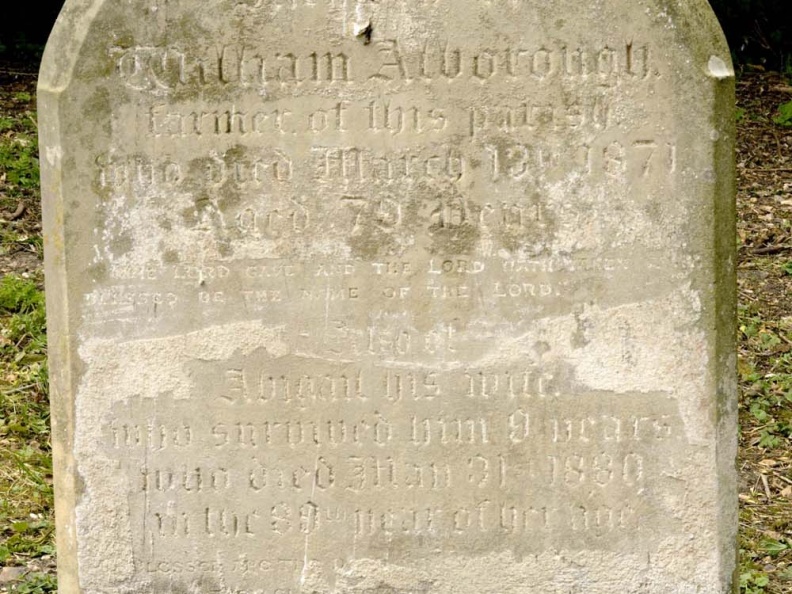 William Alborough.
farmer, of this parish.
who died March 13th 1871
Aged 79 Years
THE LORD GAVE AND THE LORD HATH
BLESSED BE THE NAME OF THE LORD.
Also of
Abigail his wife.
who survived him 9 years.
who died May 31st 1880
in the 89th year of her age.
BLESSED